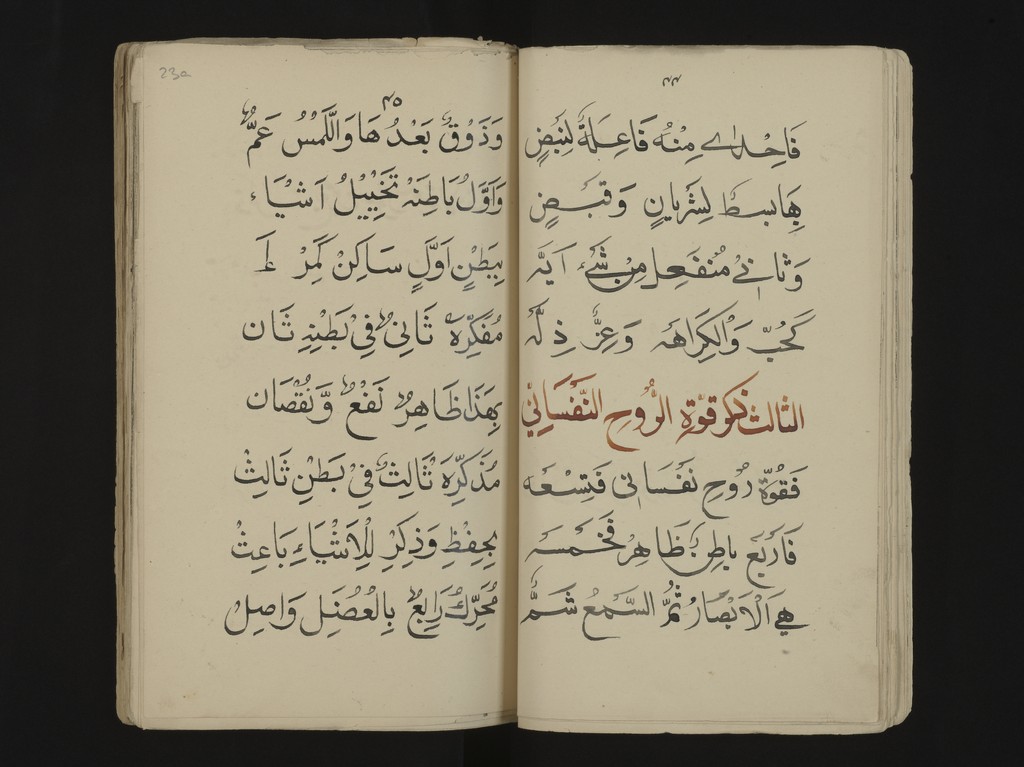 ٤٤
فَاحْدٰے مِنْهُ فَاعِلَةٌ لِنَبْضٍ
بِهَا بسط لِشَرْيانٍ وَقَبْضٍ
وَثَانِیْ مُنْفَعِل مِنْ شَیْء آيَه
كَحُبّ وَالْكِرَاهَه وَعِزٌّ ذِلَّه
الثالث ذكر قوة الرُّوحِ النَّفْسَانِيْ
فَقُوَّة رُوحِ نَفْسَانی فَتِسْعَه
فَارْبَع باطِنٌ ظَاهِر فَخَمْسَه
هِيَ الْاَبْصَارُ ثُمَّ السَّمْعُ شَمٌّ
23a
٤٥
وَذَوْقٌ بَعْدُهَا وَاللَّمْسُ عَمٌّ
وَاَوَّلُ بَاطِنَهْ تَخْيِيْلُ اَشْيَاء
بِبَطْنٍ اَوَّلٍ سَاكِنْ
مُفَكِّرَه ثَانِیٌ فِیْ بَطْنِهِ ثَان
بِهَذَا ظَاهِرٌ نَفْعٌ وَّنُقْصَان
مُذَكِّرَه ثَالِثٌ فِیْ بَطْنِ ثَالِثْ
بِحِفْظِ وَذِكْرِ لِلْاَشْيَاءِ بَاعِثْ
مُحَرِّكٌ رَابِعٌ بِالْعُضَلِ وَاصِلْ